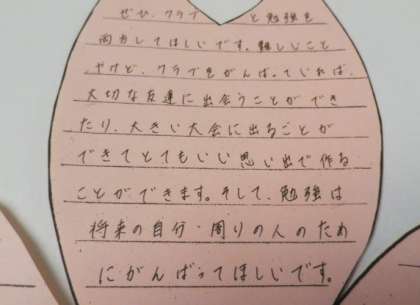 ぜひ、クラブ と勉強を
両方してほしいです。難しいこと
やけど、クラブをがんばっていれば、
大切な友達に出会うことができ
たり、大きい大会に出ることが
できてとてもいい思い出で作る
ことができます。そして、勉強は
将来の自分・周りの人のため
にがんばってほしいです。